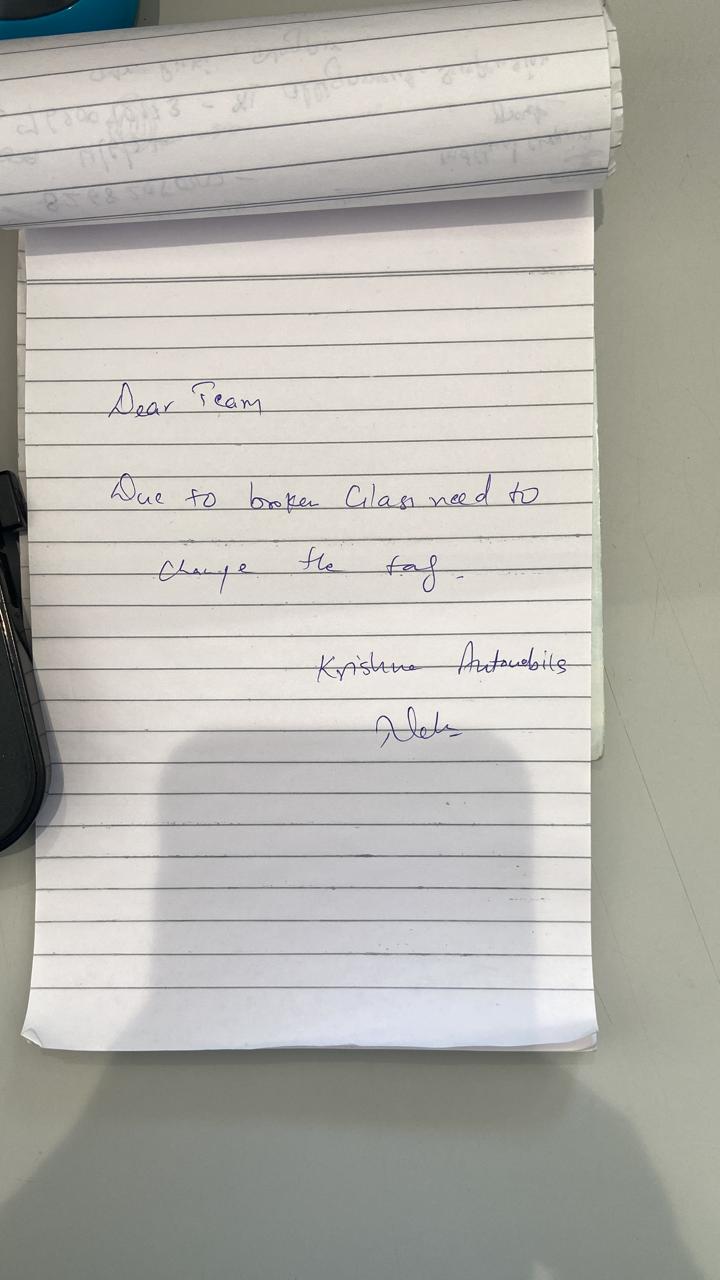 Dear Team
Due to broken Glass need to
change the tag.
Krishna Automobils